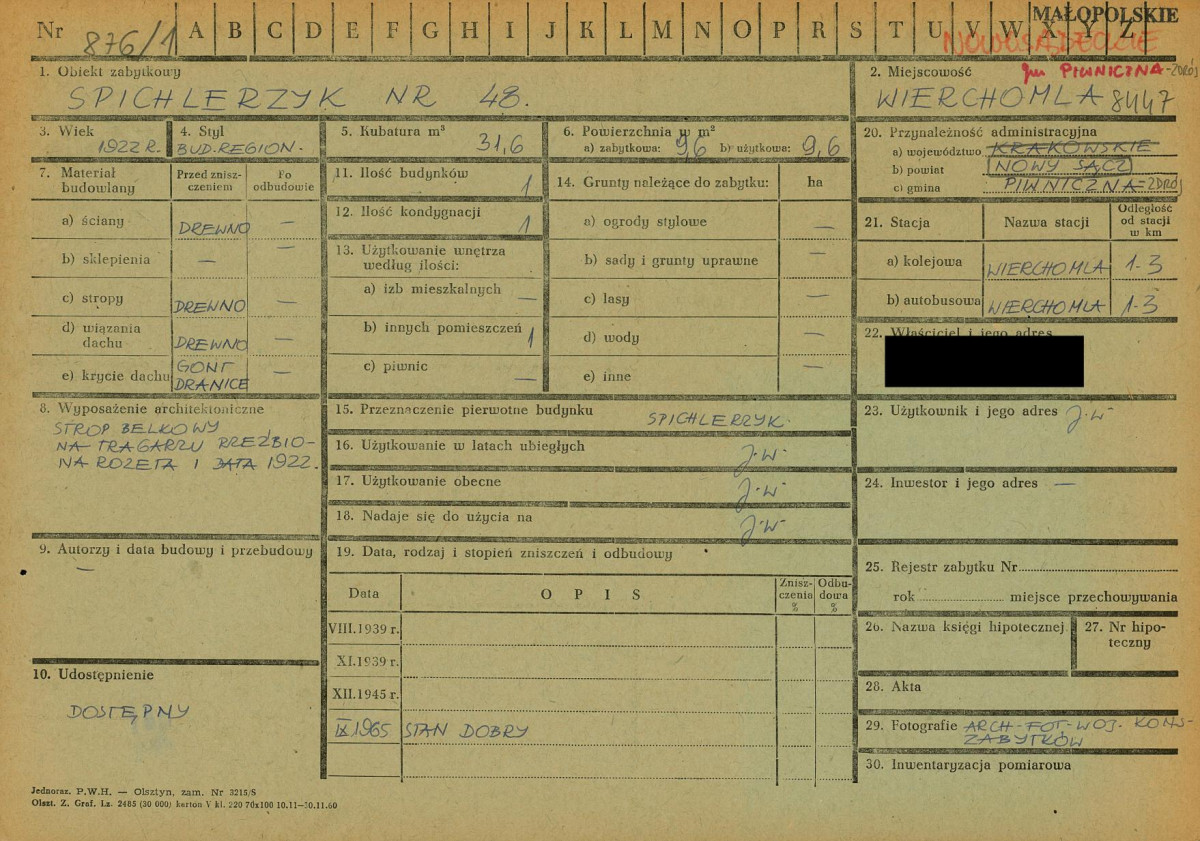 Nr 876/1 A B C D E F G H I J K L M N O P R S T U V W X Y Z
MAŁOPOLSKIE
NOWOSĄDECKIE
1. Obiekt zabytkowy
SPICHLERZYK NR 48.
2. Miejscowość gm PIWNICZNA-ZDRÓJ
WIERCHOMLA 8447
3. Wiek
1922 R.
4. Styl
BUD-REGION-
5. Kubatura m³
31,6
6. Powierzchnia w m²
a) zabytkowa: 96 b) użytkowa: 9,6
20. Przynależność administracyjna
a) województwo KRAKOWSKIE
b) powiat NOWY SĄCZ
c) gmina PIWNICZNA-ZDRÓJ
7. Materiał budowlany
Przed znisz-
czeniem
Po
odbudowie
a) ściany DREWNO —
b) sklepienia — —
c) stropy DREWNO —
d) wiązania
dachu DREWNO —
e) krycie dachu GONT
DRANICE —
11. Ilość budynków 1
12. Ilość kondygnacji 1
13. Użytkowanie wnętrza
według ilości:
a) izb mieszkalnych —
b) innych pomieszczeń 1
c) piwnic —
14. Grunty należące do zabytku: ha
a) ogrody stylowe —
b) sady i grunty uprawne —
c) lasy —
d) wody —
e) inne —
21. Stacja Nazwa stacji Odległość
od stacji
w km
a) kolejowa WIERCHOMLA 1-3
b) autobusowa WIERCHOMLA 1-3
22. Właściciel i jego adres
8. Wyposażenie architektoniczne
STROP BELKOWY
NA TRAGARZU RZEŹBIO-
NA ROZETA I DATA 1922.
15. Przeznaczenie pierwotne budynku SPICHLERZYK-
16. Użytkowanie w latach ubiegłych J-W-
17. Użytkowanie obecne J-W-
18. Nadaje się do użycia na J-W-
23. Użytkownik i jego adres J-W-
24. Inwestor i jego adres —
9. Autorzy i data budowy i przebudowy
—
19. Data, rodzaj i stopień zniszczeń i odbudowy
Data OPIS Znisz-
czenia
% Odbu-
dowa
%
VIII.1939 r.
XI.1939 r.
XII.1945 r.
IX 1965 STAN DOBRY
25. Rejestr zabytku Nr
rok miejsce przechowywania
26. Nazwa księgi hipotecznej
27. Nr hipo-
teczny
28. Akta
10. Udostępnienie
DOSTĘPNY
29. Fotografie ARCH-FOT-WOJ- KONS-
ZABYTKÓW
30. Inwentaryzacja pomiarowa
Jednoraz. P.W.H. — Olsztyn, zam. Nr 3215/S
Olszt. Z. Graf. Lz. 2485 (30 000) karton V kl. 220 70x100 10.11—30.11.60